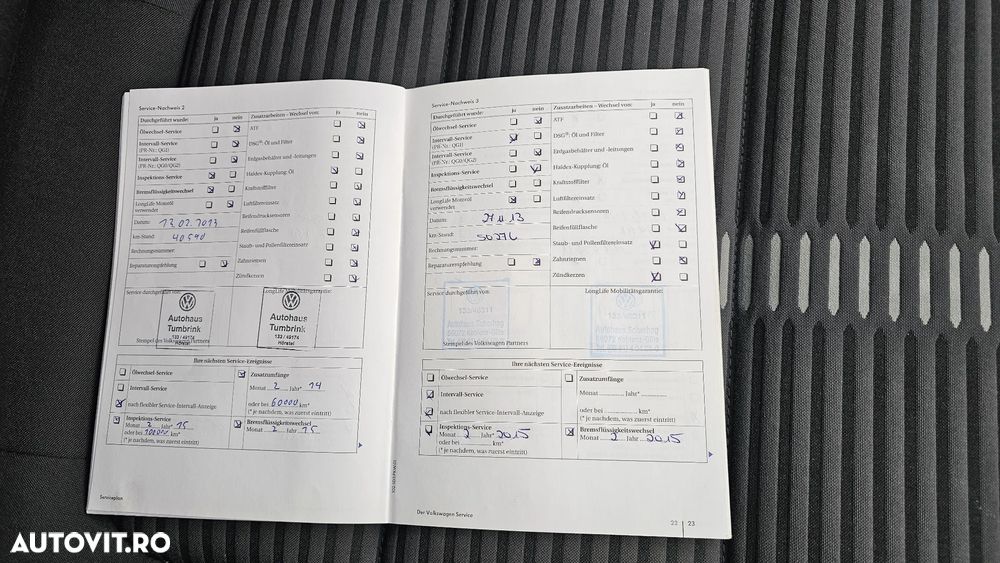 Service-Nachweis 2
Durchgeführt wurde: ja nein
Ölwechsel-Service
Intervall-Service
(PR-Nr.: QG1)
Intervall-Service
(PR-Nr.: QG0/QG2)
Inspektions-Service
Bremsflüssigkeitswechsel
LongLife Motoröl
verwendet
Datum: 13.02.2013
km-Stand: 40590
Rechnungsnummer:
Reparaturempfehlung
Zusatzarbeiten – Wechsel von: ja nein
ATF
DSG®: Öl und Filter
Erdgasbehälter und -leitungen
Haldex-Kupplung: Öl
Kraftstofffilter
Luftfiltereinsatz
Reifendrucksensoren
Reifenfüllflasche
Staub- und Pollenfiltereinsatz
Zahnriemen
Zündkerzen
Service durchgeführt von:
LongLife Mobilitätsgarantie:
Autohaus
Tumbrink
133 / 49174
Hörstel
Autohaus
Tumbrink
133 / 49174
Hörstel
Stempel des Volkswagen Partners
Ihre nächsten Service-Ereignisse
Ölwechsel-Service
Intervall-Service
nach flexibler Service-Intervall-Anzeige
Inspektions-Service
Monat 2 Jahr* 15
oder bei km*
(* je nachdem, was zuerst eintritt)
Zusatzumfänge
Monat 2 Jahr* 14
oder bei 60000 km*
(* je nachdem, was zuerst eintritt)
Bremsflüssigkeitswechsel
Monat 2 Jahr 15
Serviceplan
Service-Nachweis 3
Durchgeführt wurde: ja nein
Ölwechsel-Service
Intervall-Service
(PR-Nr.: QG1)
Intervall-Service
(PR-Nr.: QG0/QG2)
Inspektions-Service
Bremsflüssigkeitswechsel
LongLife Motoröl
verwendet
Datum: 27.11.13
km-Stand:
Rechnungsnummer:
Reparaturempfehlung
Zusatzarbeiten – Wechsel von: ja nein
ATF
DSG®: Öl und Filter
Erdgasbehälter und -leitungen
Haldex-Kupplung: Öl
Kraftstofffilter
Luftfiltereinsatz
Reifendrucksensoren
Reifenfüllflasche
Staub- und Pollenfiltereinsatz
Zahnriemen
Zündkerzen
Service durchgeführt von:
LongLife Mobilitätsgarantie:
Autohaus
Autohaus
Stempel des Volkswagen Partners
Ihre nächsten Service-Ereignisse
Ölwechsel-Service
Intervall-Service
nach flexibler Service-Intervall-Anzeige
Inspektions-Service
Monat 2 Jahr* 2015
oder bei km*
(* je nachdem, was zuerst eintritt)
Zusatzumfänge
Monat Jahr*
oder bei km*
(* je nachdem, was zuerst eintritt)
Bremsflüssigkeitswechsel
Monat 2 Jahr 2015
Der Volkswagen Service
22 23
AUTOVIT.RO